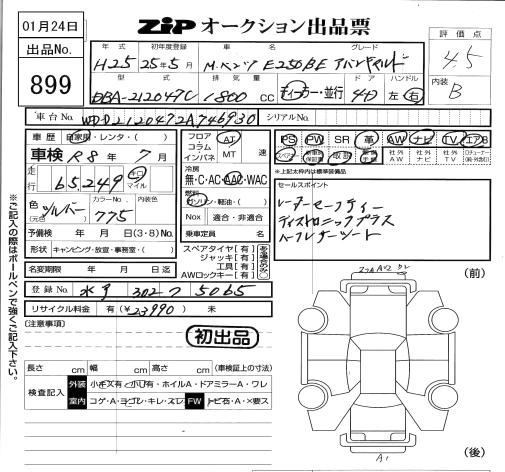 01月24日
ZiP オークション出品票
出品No.
899
年式 初年度登録 車名 グレード
H25 25年5月 M.ベンツ E250BE アバンギャルド
型式 排気量 ドア ハンドル
DBA-212047C 1800 CC ディーラー・並行 4D 左 右
評価点
4.5
内装
B
車台No. WDD2120472A746930 シリアルNo.
車歴 自家用・レンタ・( )
車検 R8年7月
走行 65,249 キロ マイル
色(元色) シルバー カラーNo. 775 内装色
予備検 年 月 日(3・8)No.
形状 キャンピング・放宣・事務室・( )
名変期限 年 月 日迄
フロア コラム インパネ AT MT 速
冷房 無・C・AC・AAC・WAC
燃料 ガソリン・軽油・( )
Nox 適合・非適合
乗車定員 名
スペアタイヤ[有]
ジャッキ[有]
工具[有]
AWロックキー[有]
PS PW SR 革 AW ナビ TV エアB
社外AW 社外ナビ 社外TV
上記太枠内は標準装備品
セールスポイント
レーダーセーフティー
ディストロニックプラス
ハーフレザーシート
登録No. 水戸 302 フ 5065
リサイクル料金 有(¥23990) 未
(注意事項)
初出品
長さ cm 幅 cm 高さ cm (車検証上の寸法)
検査記入 外装 小キズ有・小凹有・ホイルA・ドアミラーA・ワレ
室内 コゲ・A・ヨゴレ・キレ・スレ FW トビ石・A・X要ス
(前)
(後)
A1
※ご記入の際はボールペンで強くご記入下さい。